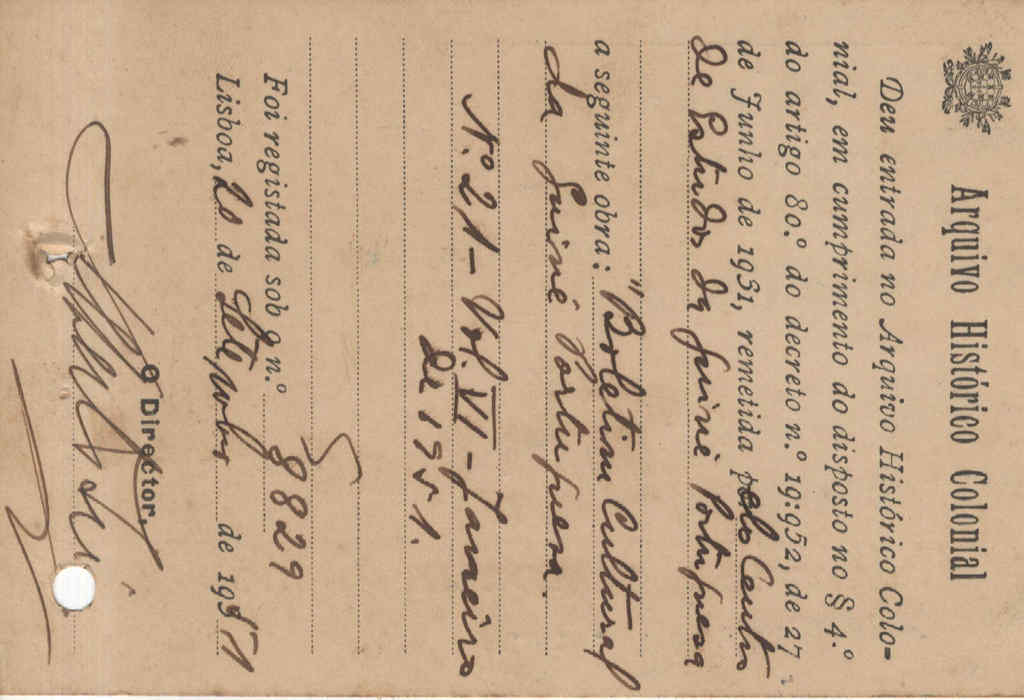 Arquivo Histórico Colonial
Deu entrada no Arquivo Histórico Colo-
nial, em cumprimento do disposto no § 4.º
do artigo 80.º do decreto n.º 19:952, de 27
de Junho de 1931, remetida pelo Centro
de Estudos da Guiné Portuguesa
a seguinte obra: "Boletim Cultural
da Guiné Portuguesa.
N.º 21 - Vol. VI - Janeiro
de 1951.
Foi registada sob o n.º 8829
Lisboa, 20 de Setembro de 1951
O Director,